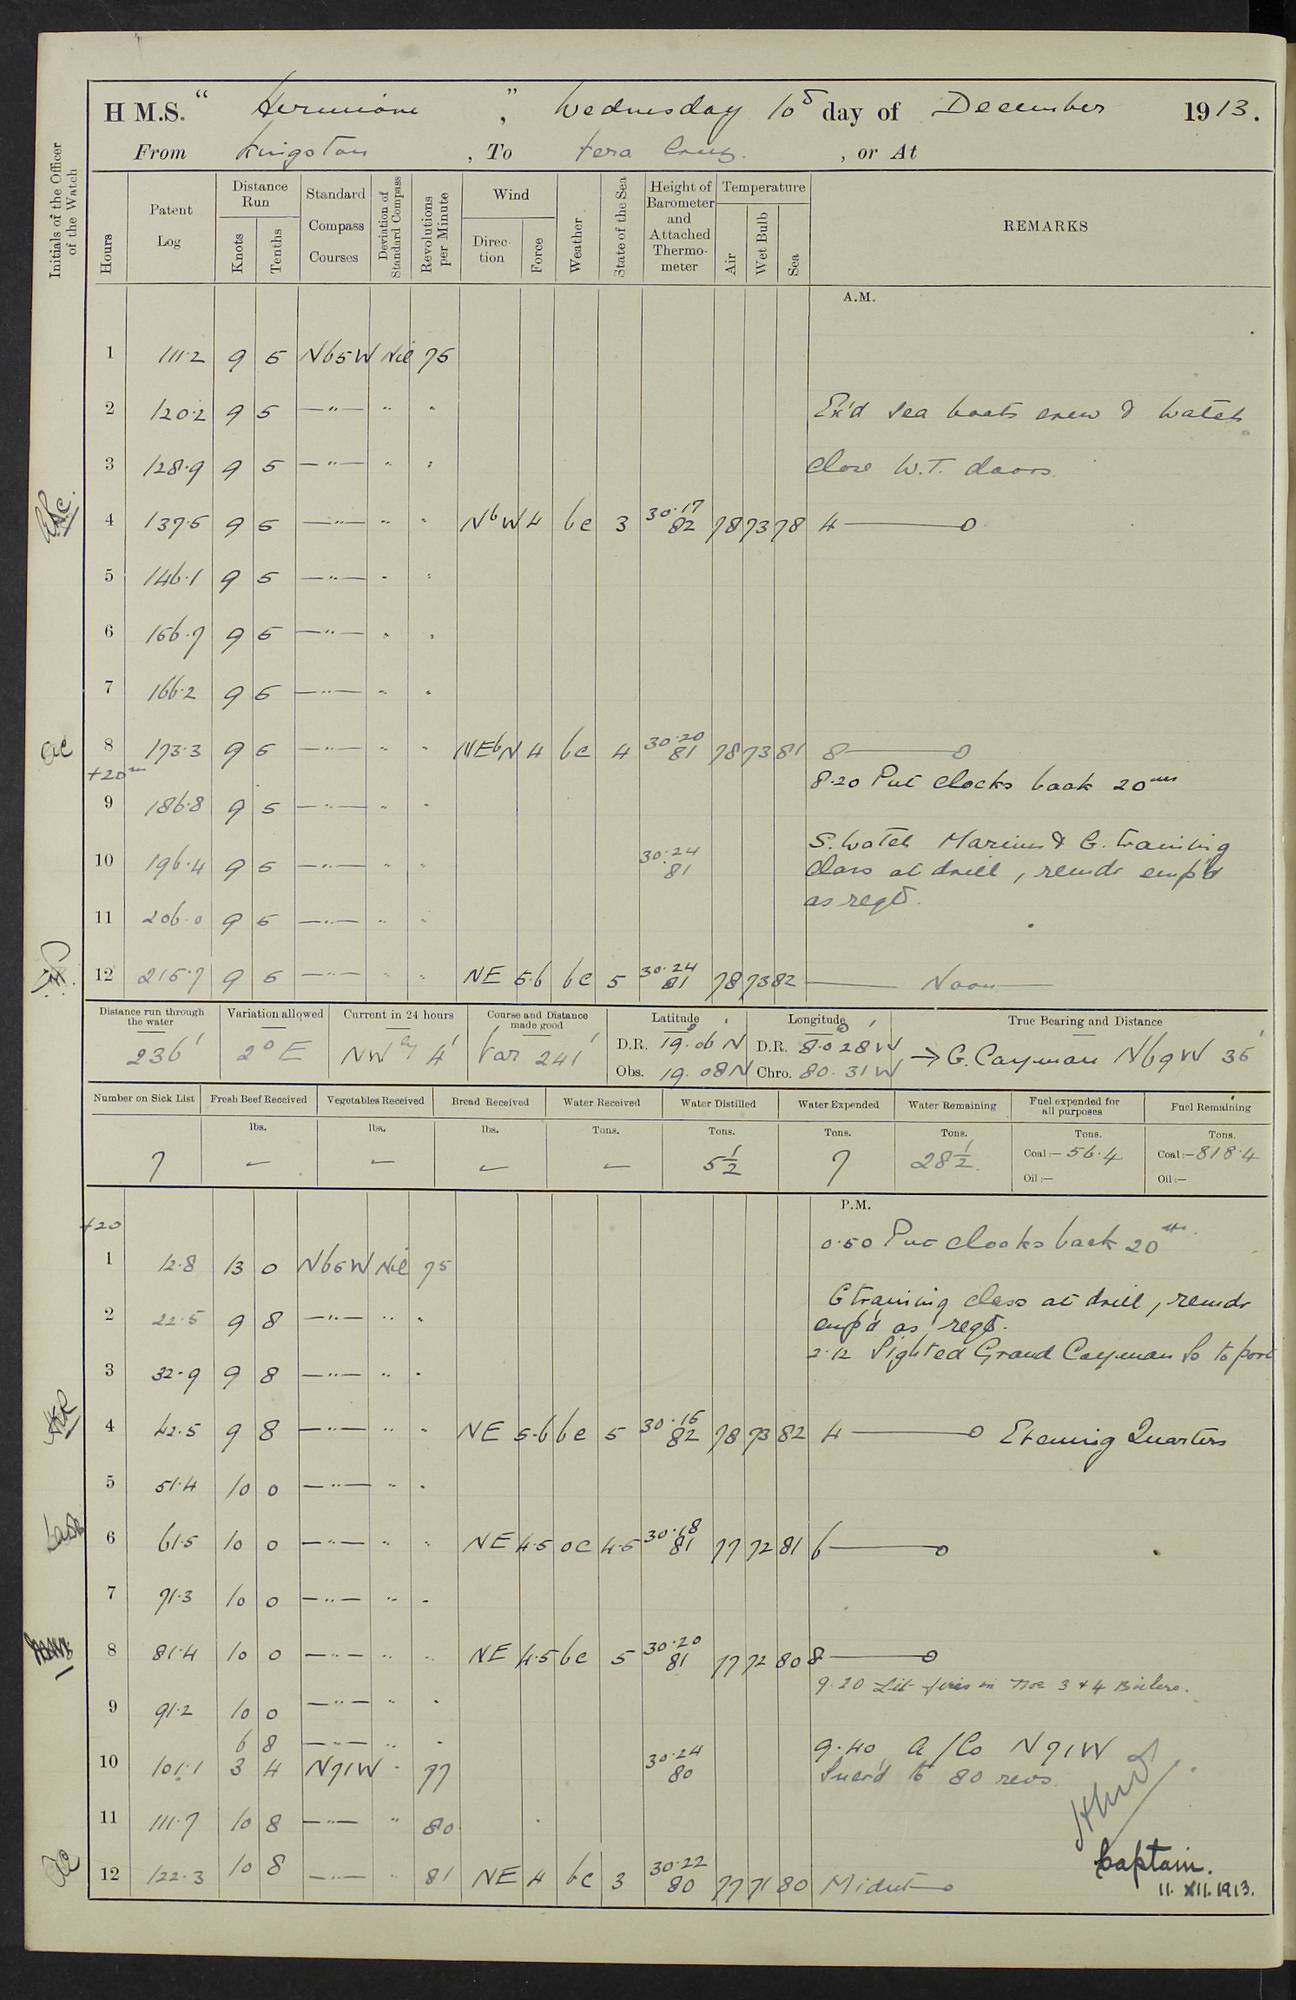 H M.S. " Hermione ", Wednesday 10th day of December 1913.
From Kingston, To Vera Cruz., or At
Initials of the Officer of the Watch
Hours
Patent Log
Distance Run
Knots
Tenths
Standard Compass Courses
Deviation of Standard Compass
Revolutions per Minute
Wind
Direction
Force
Weather
State of the Sea
Height of Barometer and Attached Thermometer
Temperature
Air
Wet Bulb
Sea
REMARKS
A.M.
1 111.2 9 5 N65W Nil 75
2 120.2 9 5 —"— " " Ex'd sea boats crew & watch
3 128.9 9 5 —"— " " close W.T. doors.
4 137.5 9 5 —"— " " NbW 4 bc 3 30.17 82 78 73 78 4———o
5 146.1 9 5 —"— " "
6 156.7 9 5 —"— " "
7 166.2 9 5 —"— " "
8 173.3 9 5 —"— " " NEbN 4 bc 4 30.20 81 78 73 81 8———o
+20m 8.20 Put clocks back 20ms
9 186.8 9 5 —"— " "
S. watch Marines & G. training
10 196.4 9 5 —"— " " 30.24 81 class at drill, remdr emp'd
as reqd.
11 206.0 9 5 —"— " "
12 215.7 9 5 —"— " " NE 5.6 bc 5 30.24 81 78 73 82 ——— Noon ———
Distance run through the water 236'
Variation allowed 2° E
Current in 24 hours NW by 4'
Course and Distance made good Var 241'
Latitude D.R. 19.06 N Obs. 19.08 N
Longitude D.R. 80 28 W Chro. 80.31 W
True Bearing and Distance → G. Cayman N69W 35'
Number on Sick List 7
Fresh Beef Received lbs. ✓
Vegetables Received lbs. ✓
Bread Received lbs. ✓
Water Received Tons. ✓
Water Distilled Tons. 5½
Water Expended Tons. 7
Water Remaining Tons. 28½
Fuel expended for all purposes Tons. Coal:— 56.4 Oil:—
Fuel Remaining Tons. Coal:— 818.4 Oil:—
P.M.
+20 0.50 Put clocks back 20m.
1 12.8 13 0 N65W Nil 75
G training class at drill, remdr
2 22.5 9 8 —"— " " emp'd as reqd.
2.12 Sighted Grand Cayman Is to port
3 32.9 9 8 —"— " "
4 42.5 9 8 —"— " " NE 5.6 bc 5 30.16 82 78 73 82 4———o Evening Quarters
5 51.4 10 0 —"— " "
6 61.5 10 0 —"— " " NE 4.5 oc 4.5 30.18 81 77 72 81 6———o
7 71.3 10 0 —"— " "
8 81.4 10 0 —"— " " NE 4.5 bc 5 30.20 81 77 72 80 8———o
9.20 Lit fires in Nos 3 & 4 Boilers.
9 91.2 10 0 —"— " "
6 8 —"— " " 9.40 A/Co N71W
10 101.1 3 4 N71W " 77 30.24 80 Incr'd to 80 revs
11 111.7 10 8 —"— " 80
12 122.3 10 8 —"— " 81 NE 4 bc 3 30.22 80 77 71 80 Midnt———o
Captain.
11. XII. 1913.